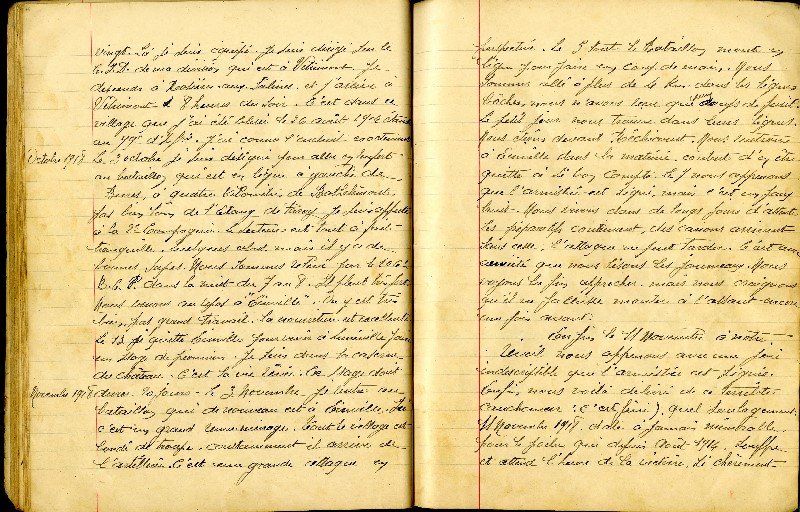 vingt. Là je suis coupé. Je suis dirigé sur le
C.I.D. de ma division qui est à Vitrimont. Je
descends à Rosières-aux-Salines et j'arrive à
Vitrimont à 8 heures du soir. C'est dans ce
village que j'ai été blessé le 26 août 1914 étant
au
Octobre 1918
le 2 octobre je suis désigné pour aller en renfort
au bataillon qui est en ligne à gauche de
Bures, à quatre kilomètres de Bathelémont
pas bien loin de l'Etang de Je suis affecté
à la 2e Compagnie. Le secteur est tout à fait
tranquille. Quelques obus mais il y a de
bonnes sapes. Nous sommes relevé par le
R.I. dans la nuit du 7 au 8. Il pleut très fort
Nous venons au repos à "Einville". On y est très
bien, pas grand travail. la nourriture est excellente
Le 13 je quitte Einville pour venir à Lunéville faire
un stage de pionnier. Je suis dans la caserne
du château. C'est la vie libre. Ce stage doit
Novembre 1918
durer 20 jours. le 3 Novembre je rentre au
bataillon qui de nouveau est à Einville. Ici
c'est un grand remue-ménage. Tout le village est
bondé de troupe. continuement il arrive de
l'artillerie. C'est une grande attaque en
perspective. Le 5 tout le bataillon monte en
ligne pour faire un coup de main. Nous
sommes allé à plus de 2 km. dans les lignes
boches, nous n'avons reçu que coups de fusil
le petit jour nous trouve dans leurs lignes.
Nous étions devant Nous rentrons
à Einville dans la matinée content d'en être
quitte à si bon compte. Le 7 nous apprenons
que l'armistice est signé, mais c'est un faux
bruit. Nous vivons dans de longs jours d'attente
les préparatifs continuent, des canons arrivent
sans cesse. L'attaque ne peut tarder. C'est avec
anxiété que nous lisons les journeaux. Nous
voyons la fin approcher mais nous craignons
qu'il ne faille monter à l'assaut encore
une fois avant.
Enfin le 11 Novembre à notre
réveil nous apprenons avec une joie
indescriptible que l'armistice est signée.
Enfin, nous voilà délivré de ce terrible
cauchemar (c'est fini), quel soulagement.
11 Novembre 1918. date à jamais mémorable
pour le poilu qui depuis Août 1914 souffre
et attend l'heure de la victoire, si chèrement